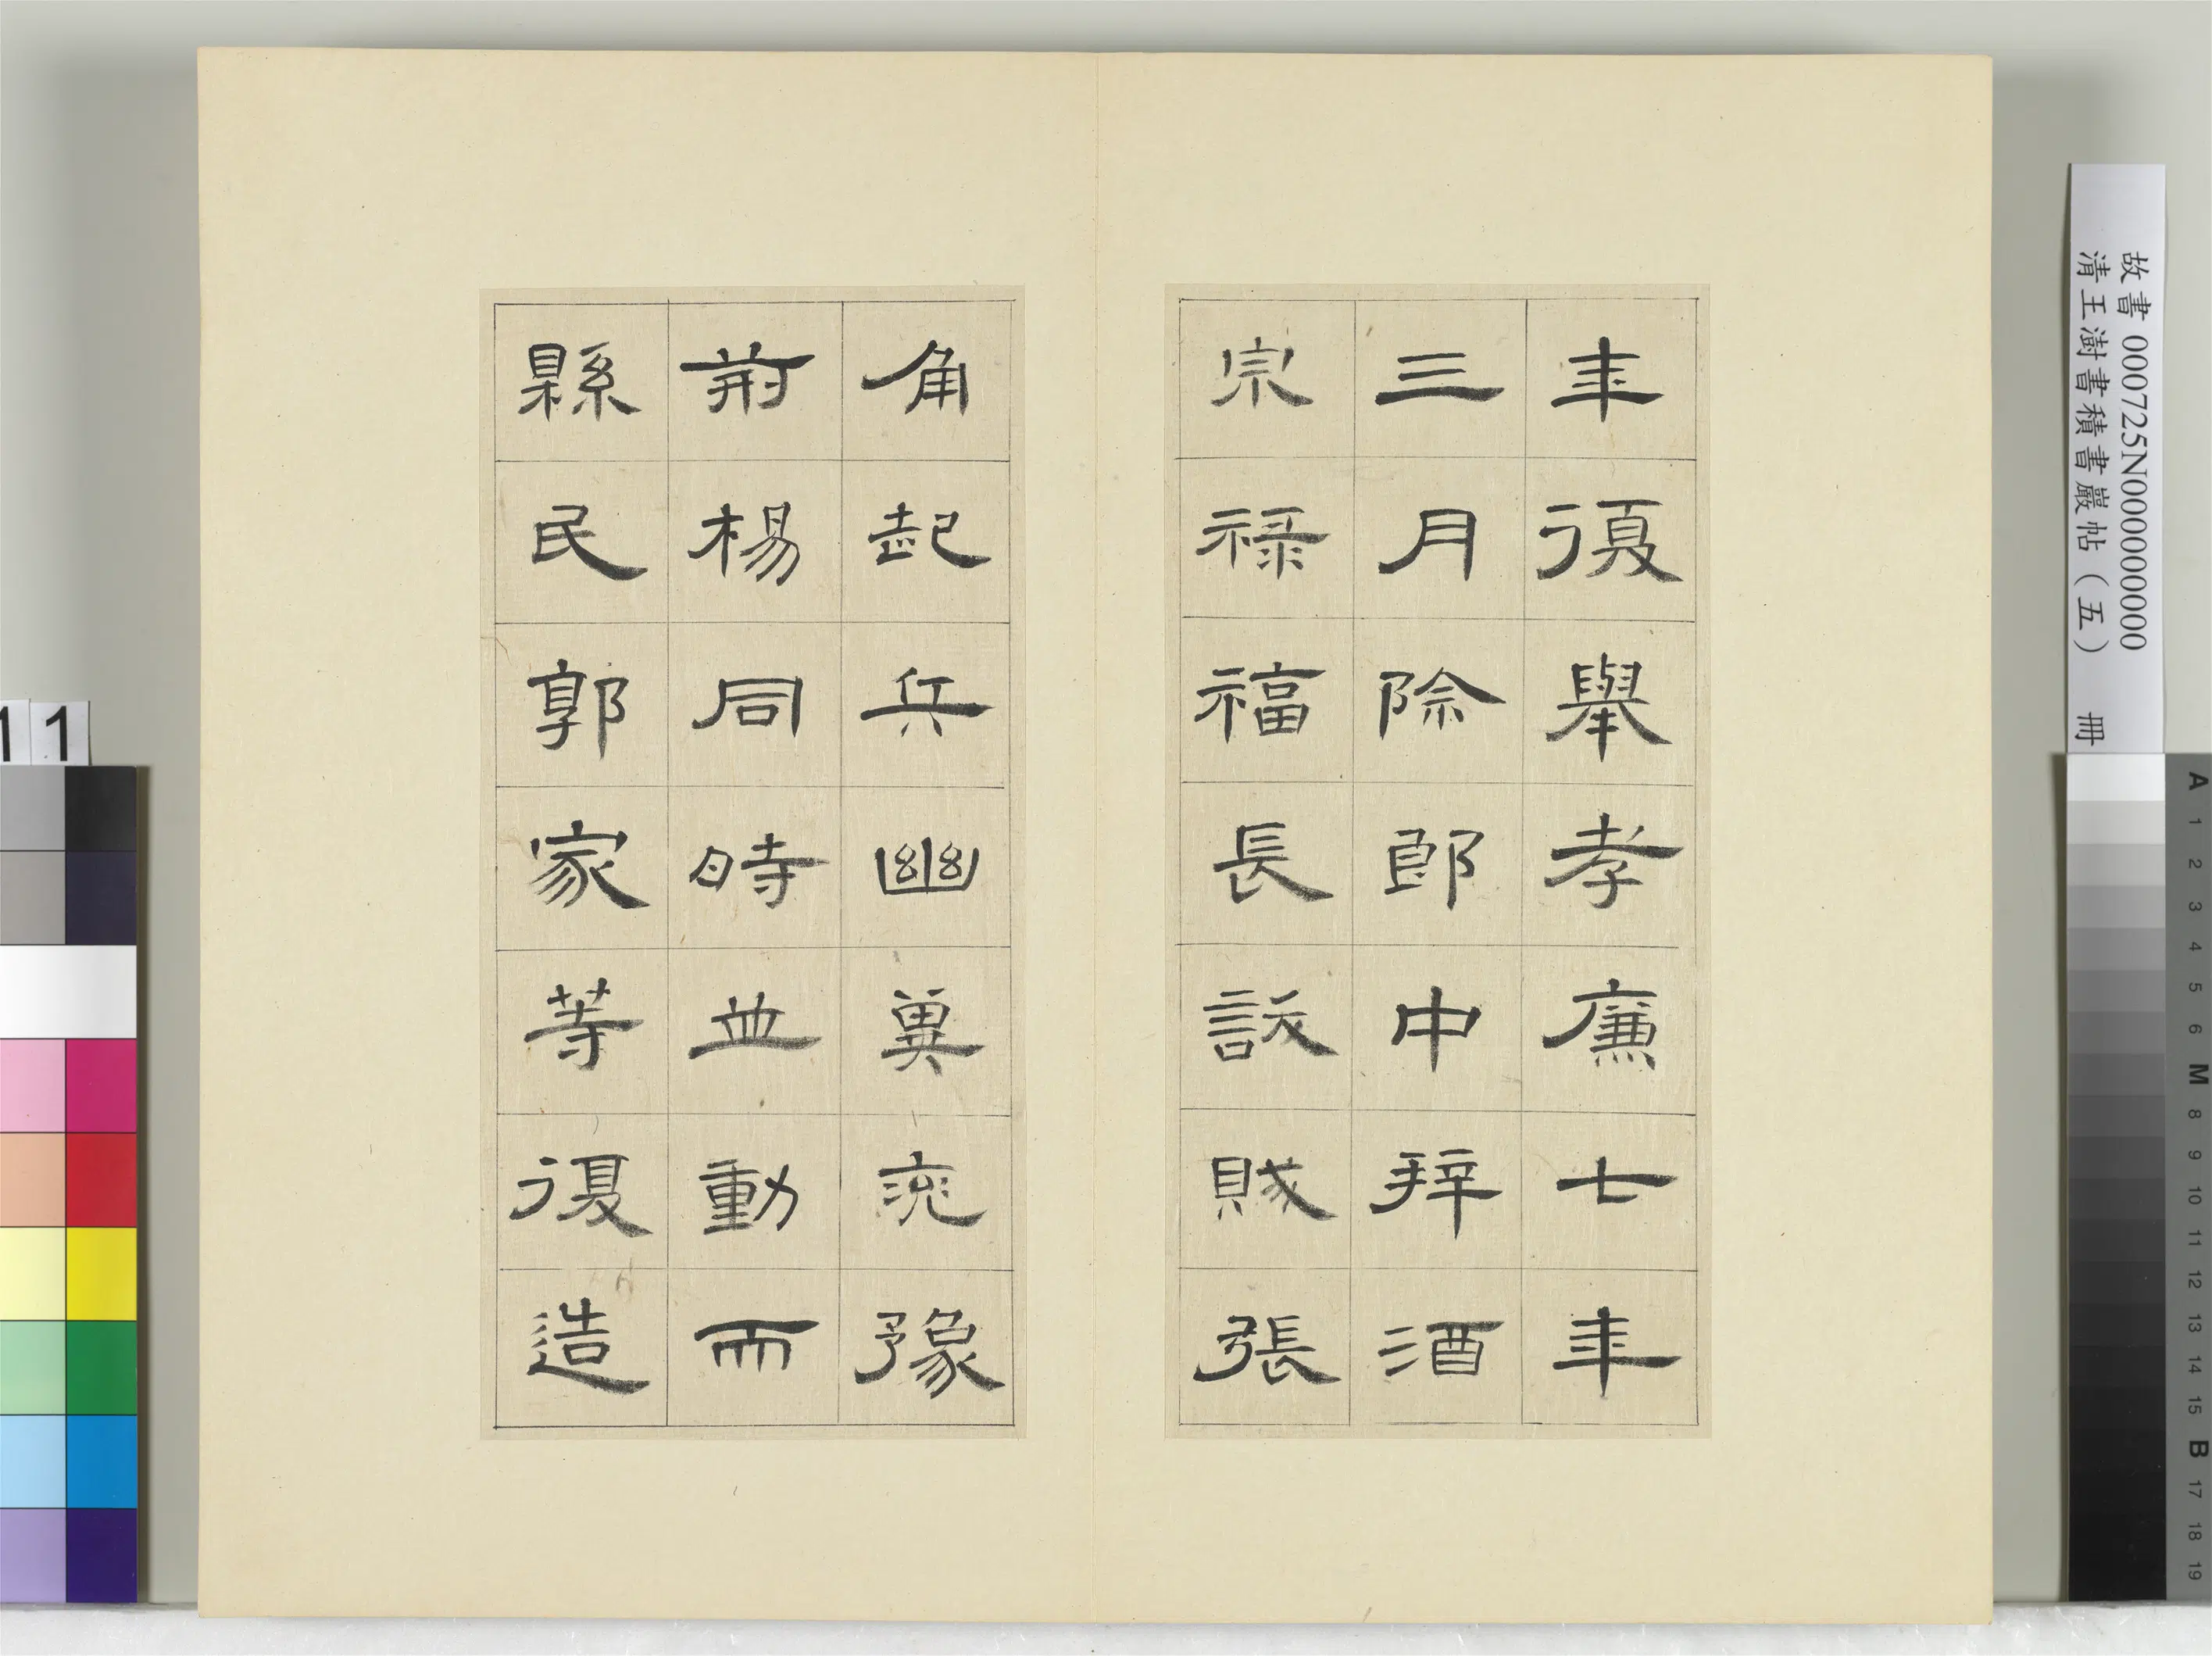 年復舉孝廉七年
三月除郎中拜酒
宗祿福長訞賊張
角起兵幽冀兗豫
荊楊同時並動而
縣民郭家等復造
故書 000725N000000000
清王澍書積書巖帖（五） 冊
11
A 1 2 3 4 5 6 M 8 9 10 11 12 13 14 15 B 17 18 19